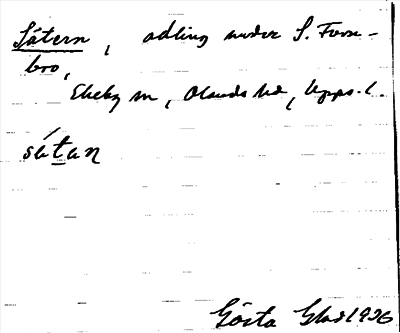 Sätern, odling under S. Forse-
bro,
Ekeby sn, Olands hd, Upps. l.
sätan
Gösta